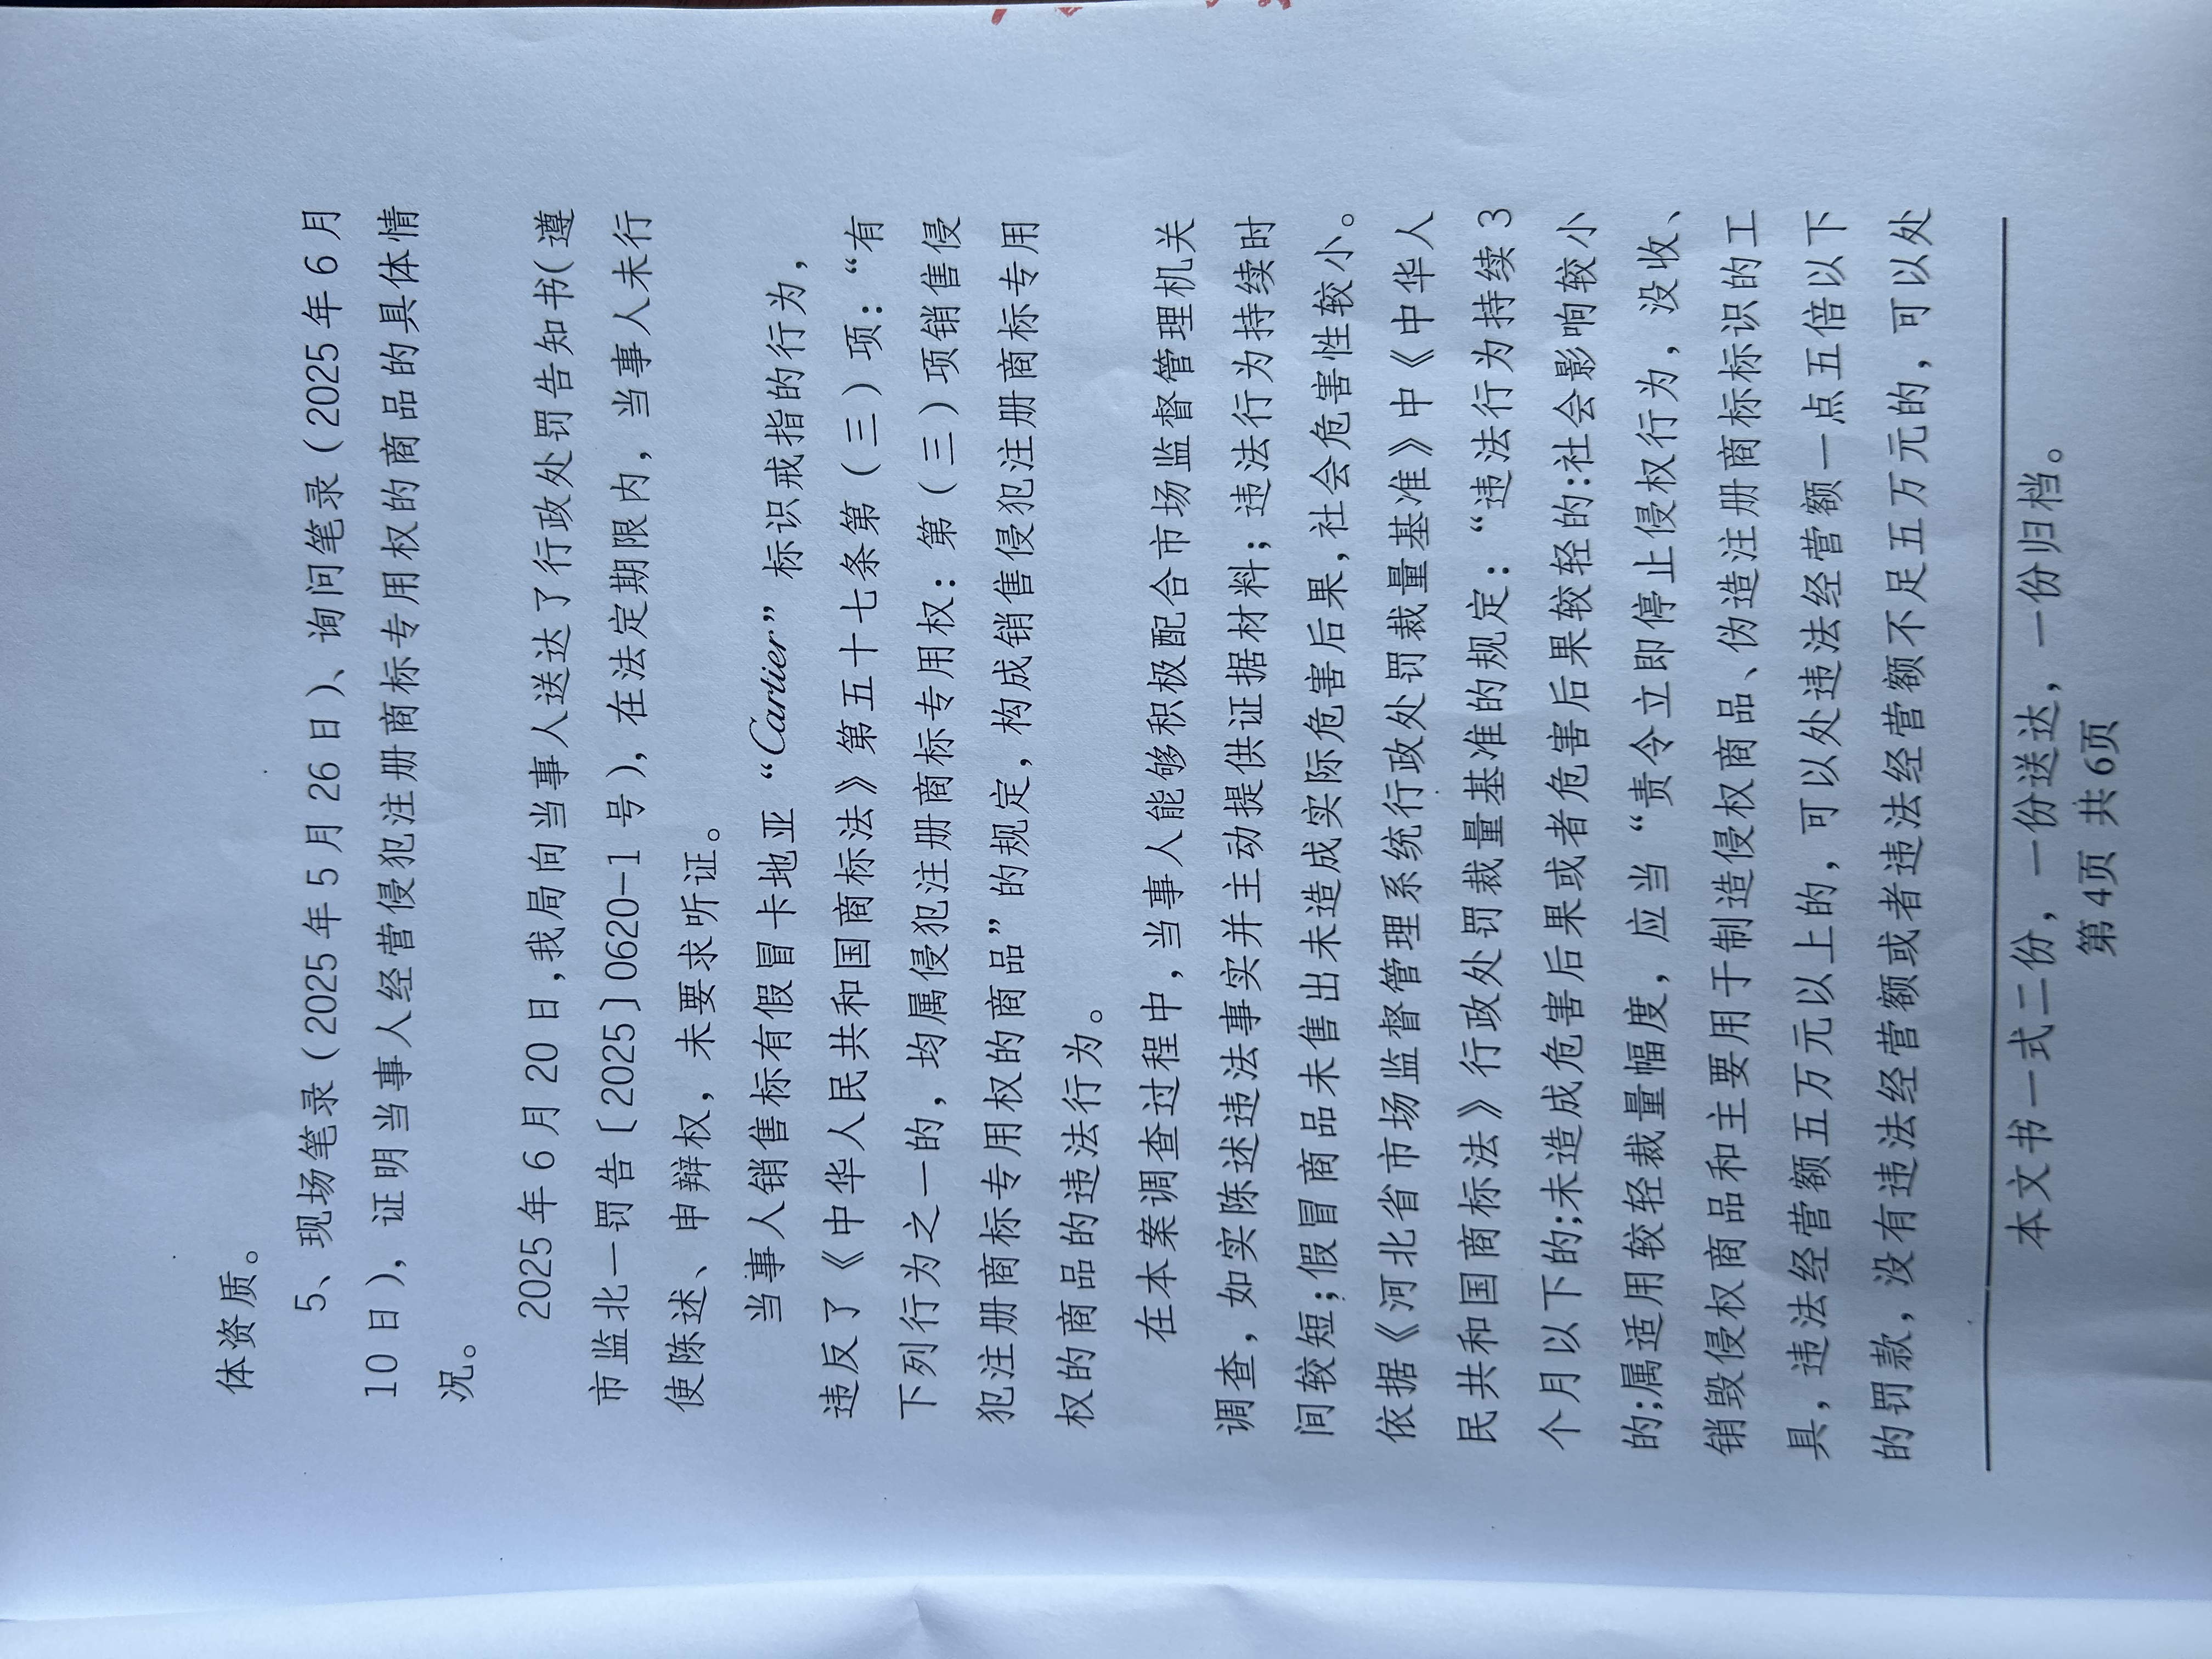 体资质。
5、现场笔录（2025 年 5 月 26 日）、询问笔录（2025 年 6 月
10 日），证明当事人经营侵犯注册商标专用权的商品的具体情
况。
2025 年 6 月 20 日,我局向当事人送达了行政处罚告知书(遵
市监北一罚告〔2025〕0620-1 号），在法定期限内，当事人未行
使陈述、申辩权，未要求听证。
当事人销售标有假冒卡地亚“Cartier”标识戒指的行为，
违反了《中华人民共和国商标法》第五十七条第（三）项：“有
下列行为之一的，均属侵犯注册商标专用权：第（三）项销售侵
犯注册商标专用权的商品”的规定，构成销售侵犯注册商标专用
权的商品的违法行为。
在本案调查过程中,当事人能够积极配合市场监督管理机关
调查，如实陈述违法事实并主动提供证据材料；违法行为持续时
间较短;假冒商品未售出未造成实际危害后果,社会危害性较小。
依据《河北省市场监督管理系统行政处罚裁量基准》中《中华人
民共和国商标法》行政处罚裁量基准的规定：“违法行为持续 3
个月以下的;未造成危害后果或者危害后果较轻的:社会影响较小
的;属适用较轻裁量幅度，应当“责令立即停止侵权行为，没收、
销毁侵权商品和主要用于制造侵权商品、伪造注册商标标识的工
具，违法经营额五万元以上的，可以处违法经营额一点五倍以下
的罚款，没有违法经营额或者违法经营额不足五万元的，可以处
本文书一式二份，一份送达，一份归档。
第 4页 共 6页